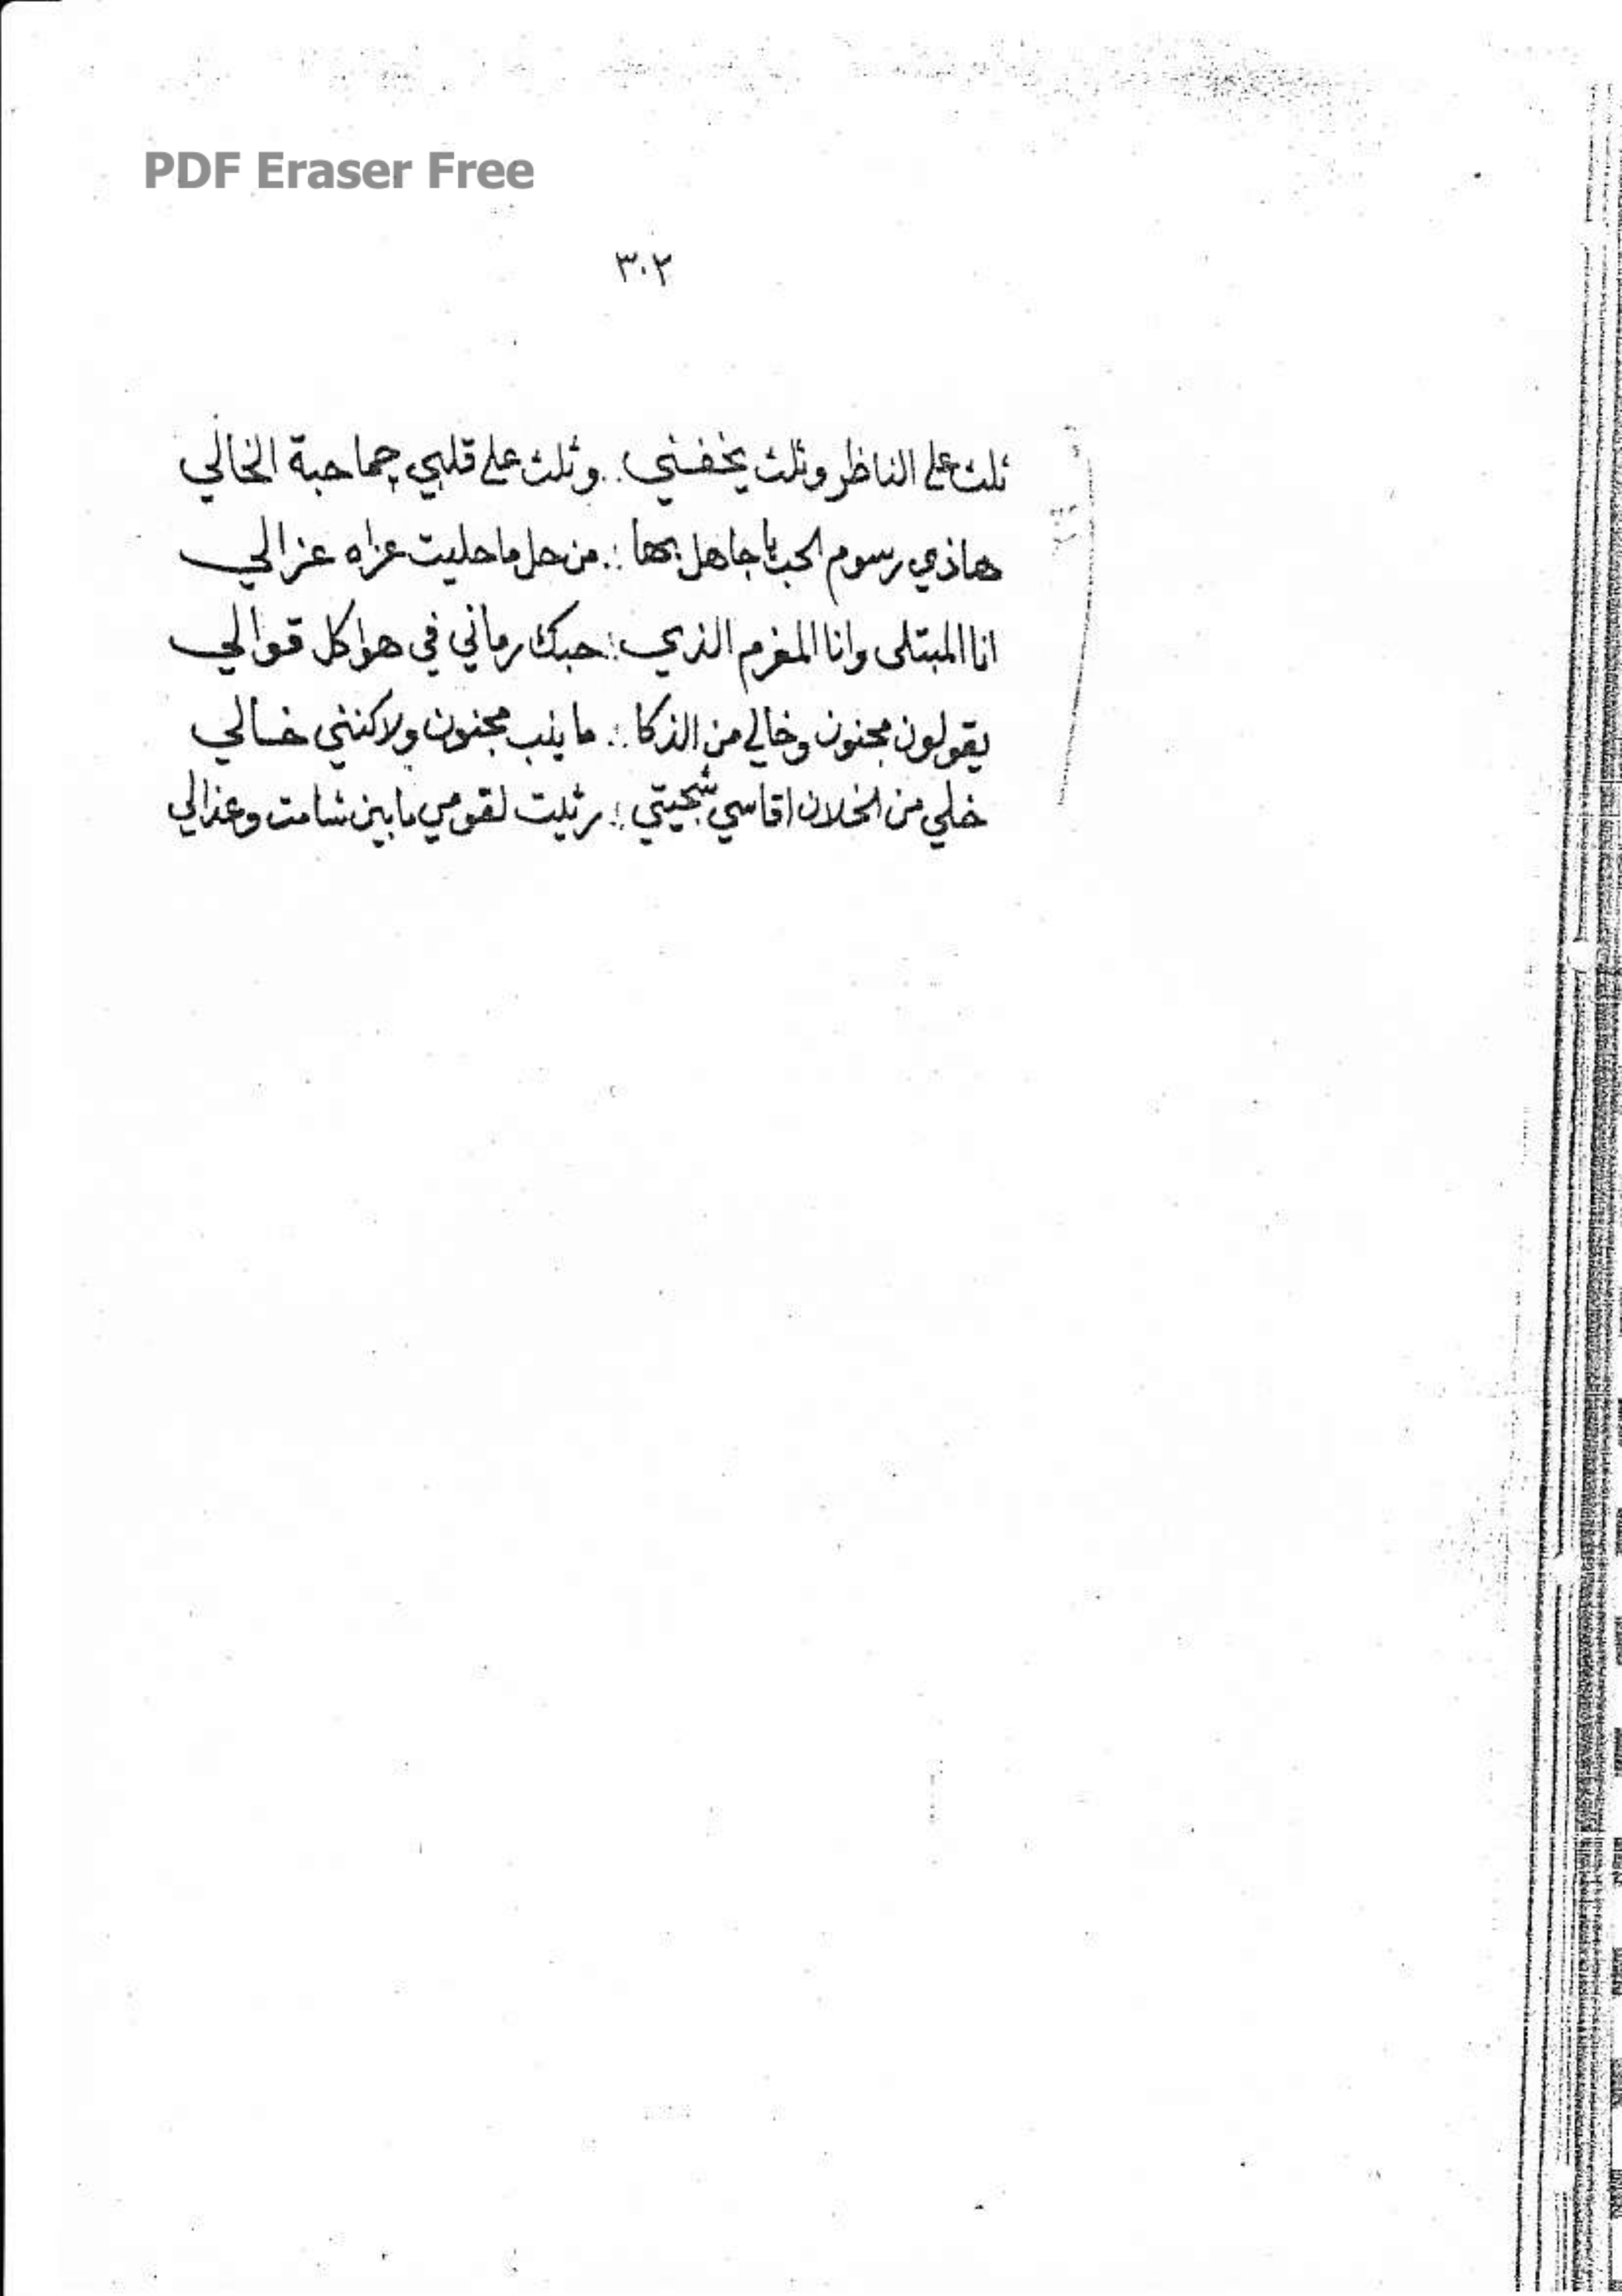 PDF Eraser Free
٣٠٢
ثلث على الناظر وثلث يخفني ∴ وثلث على قلبي چما حبة الخالي
هاذي رسوم الحب يا جاهل بها ∴ من حل ما حليت عزاه عزالي
انا المبتلى وانا المغرم الذي ∴ حبك رماني في هوا كل قوالي
يقولون مجنون وخالي من الذكا ∴ ما ينب مجنون ولاكنني خالي
خلي من الخلان اقاسي شجيتي ∴ رثيت لقومي ما بين شامت وعذالي